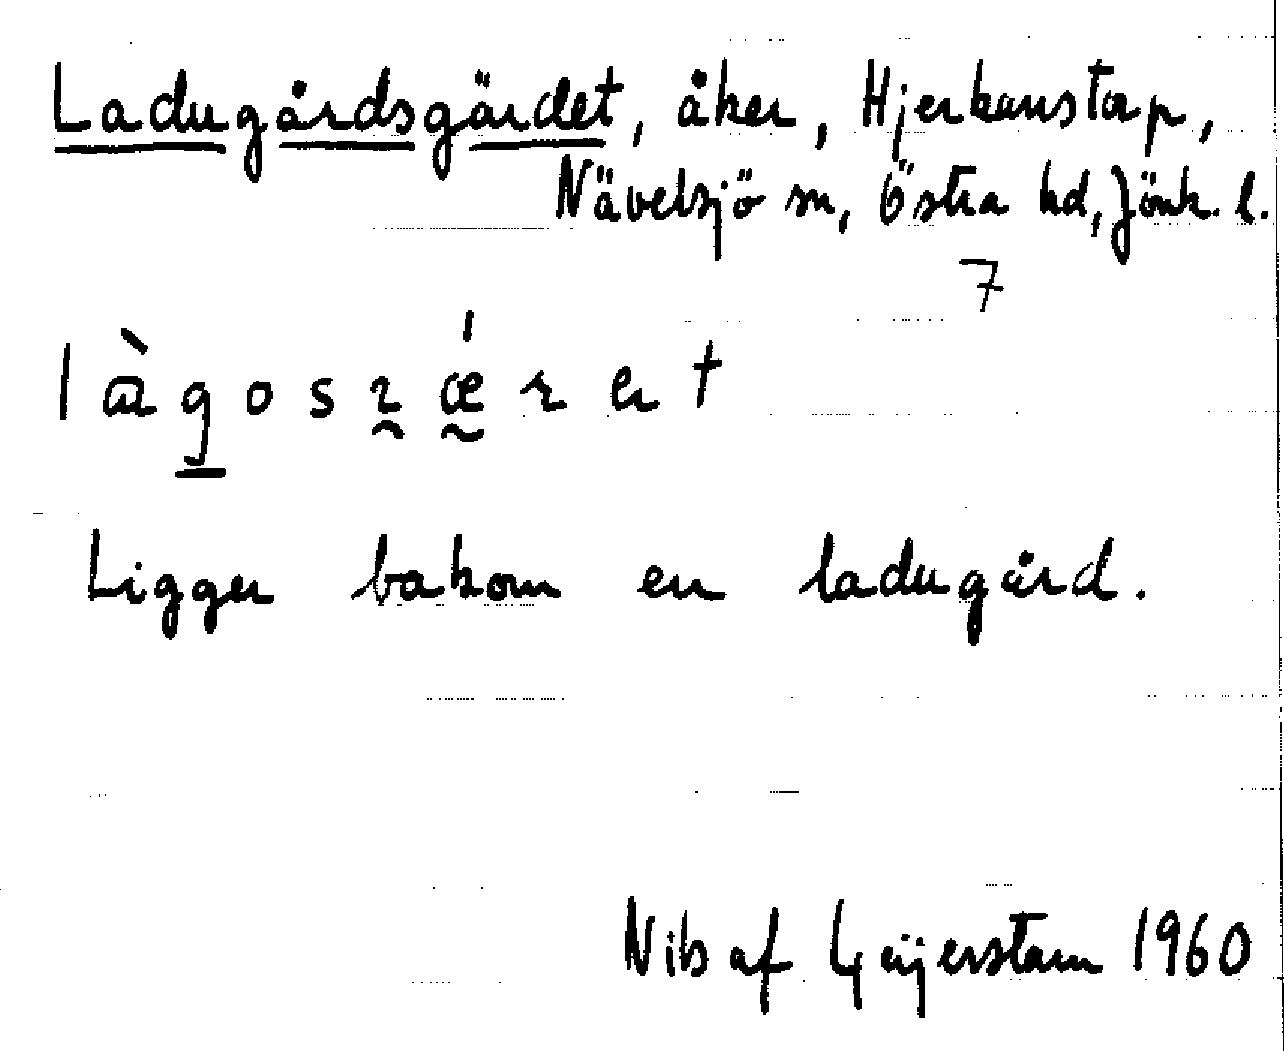 Ladugårdsgärdet, åker, Hjerkanstorp,
Nävelsjö sn, Östra hd, Jönk. l.
7
Ligger bakom en ladugård.
Nils af Geijerstam 1960